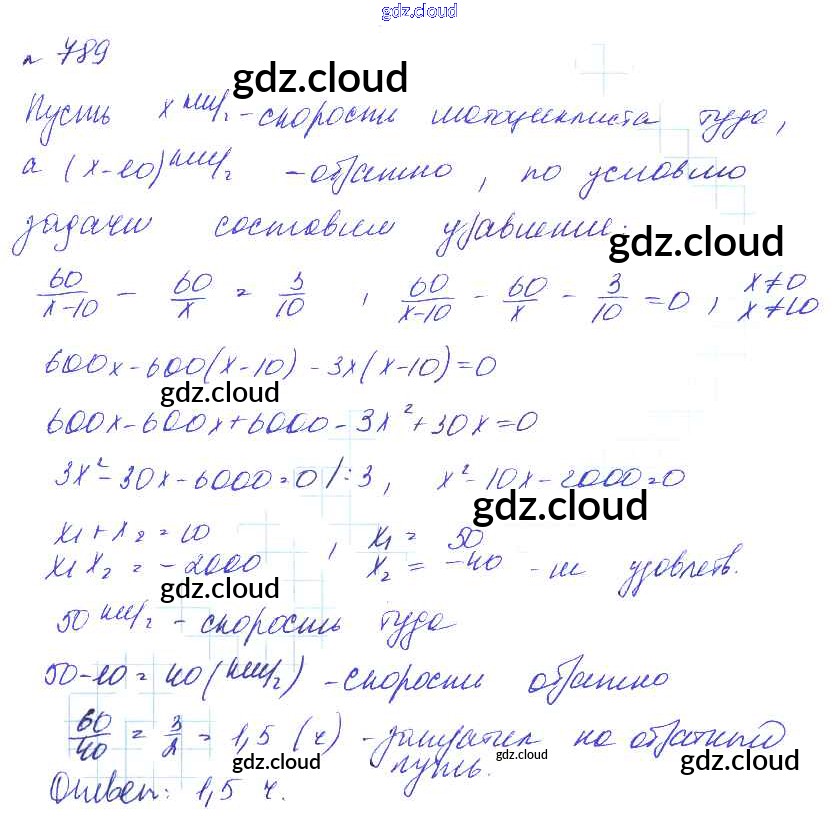 gdz.cloud
№ 789
gdz.cloud
Пусть x км/ч - скорость мотоциклиста туда,
а (x-10) км/ч - обратно, по условию
задачи составим уравнение:
gdz.cloud
60/(x-10) - 60/x = 3/10, 60/(x-10) - 60/x - 3/10 = 0, x≠0 x≠10
600x-600(x-10)-3x(x-10)=0
gdz.cloud
600x-600x+6000-3x²+30x=0
3x²-30x-6000=0 /:3, x²-10x-2000=0
gdz.cloud
x₁+x₂=10, x₁= 50
x₁x₂=-2000 x₂=-40 - не удовлетв.
gdz.cloud
50 км/ч - скорость туда
50-10=40 (км/ч) - скорость обратно
60/40 = 3/2 = 1,5 (ч) - затратил на обратный
путь.
gdz.cloud gdz.cloud gdz.cloud
Ответ: 1,5 ч.